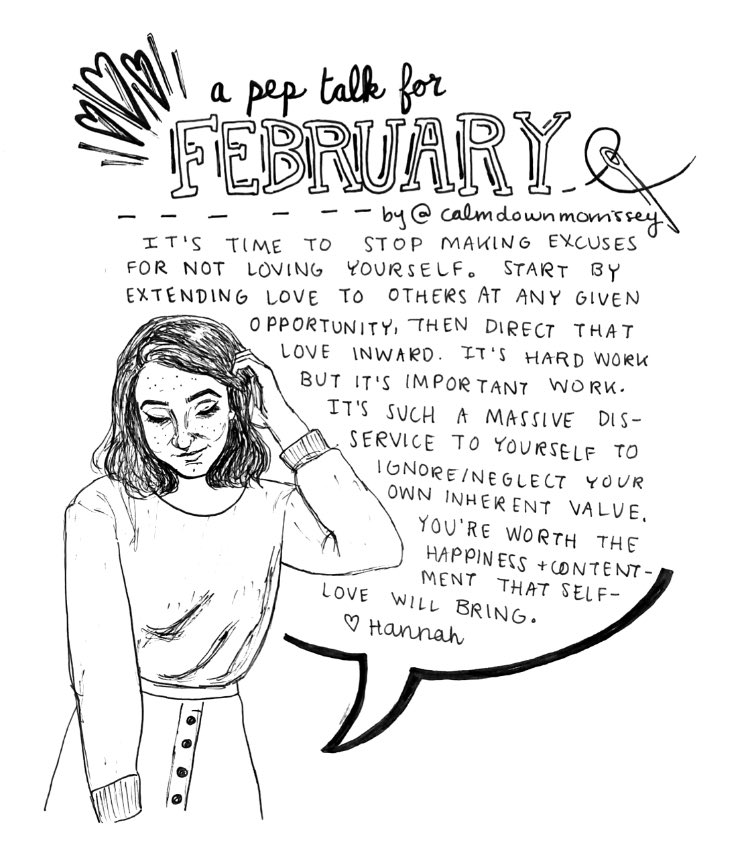 a pep talk for
FEBRUARY
by @calmdownmorrissey
IT'S TIME TO STOP MAKING EXCUSES
FOR NOT LOVING YOURSELF. START BY
EXTENDING LOVE TO OTHERS AT ANY GIVEN
OPPORTUNITY, THEN DIRECT THAT
LOVE INWARD. IT'S HARD WORK
BUT IT'S IMPORTANT WORK.
IT'S SUCH A MASSIVE DIS-
SERVICE TO YOURSELF TO
IGNORE/NEGLECT YOUR
OWN INHERENT VALUE.
YOU'RE WORTH THE
HAPPINESS + CONTENT-
MENT THAT SELF-
LOVE WILL BRING.
♡ Hannah